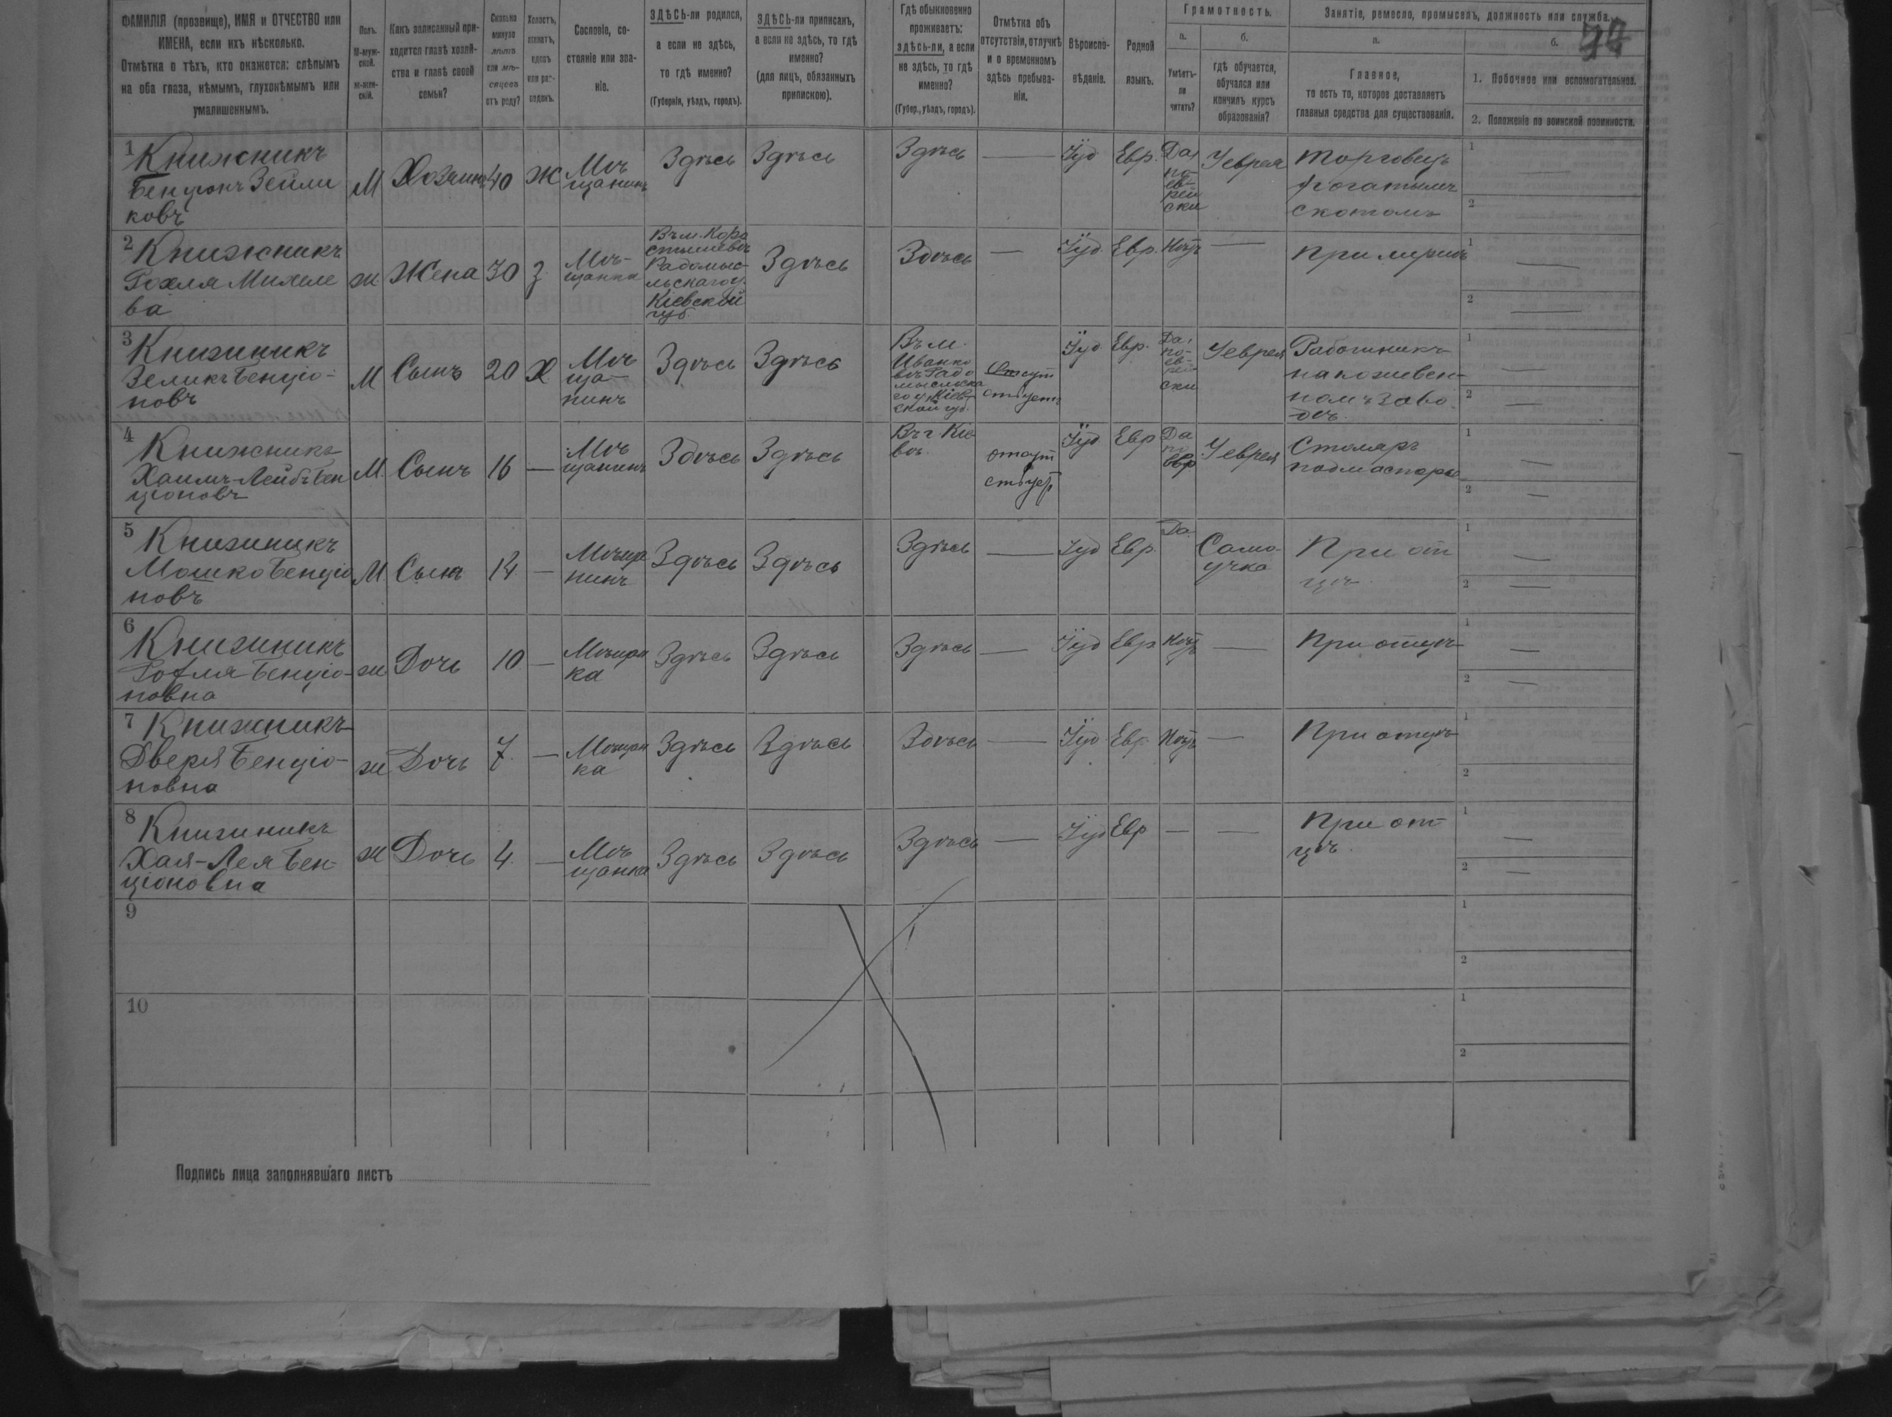 ФАМИЛІЯ (прозвище), ИМЯ и ОТЧЕСТВО или
ИМЕНА, если ихъ нѣсколько.
Отмѣтка о тѣхъ, кто окажется: слѣпымъ
на оба глаза, нѣмымъ, глухонѣмымъ или
умалишеннымъ.
Полъ.
М-муж-
ской.
Ж-жен-
скій.
Какъ записанный при-
ходится главѣ хозяй-
ства и главѣ своей
семьи?
Сколько
минуло
лѣтъ
или мѣ-
сяцевъ
отъ роду?
Холостъ,
женатъ,
вдовъ
или раз-
веденъ.
Сословіе, со-
стояніе или зва-
ніе.
ЗДѢСЬ-ли родился,
а если не здѣсь,
то гдѣ именно?
(Губернія, уѣздъ, городъ).
ЗДѢСЬ-ли приписанъ,
а если не здѣсь, то гдѣ
именно?
(для лицъ, обязанныхъ
припискою).
Гдѣ обыкновенно
проживаетъ:
здѣсь-ли, а если
не здѣсь, то гдѣ
именно?
(Губер., уѣздъ, городъ).
Отмѣтка объ
отсутствіи, отлучкѣ
и о временномъ
здѣсь пребыва-
ніи.
Вѣроиспо-
вѣданіе.
Родной
языкъ.
Грамотность.
а.
Умѣетъ-
ли
читать?
б.
гдѣ обучается,
обучался или
кончилъ курсъ
образованія?
Занятіе, ремесло, промыселъ, должность или служба.
а.
Главное,
то есть то, которое доставляетъ
главныя средства для существованія.
б.
1. Побочное или вспомогательное.
2. Положеніе по воинской повинности.
1 Книжникъ
Бенціонъ Зейли
ковъ
М
Хозяинъ
40
Ж
Мѣ
щанинъ
Здѣсь
Здѣсь
Здѣсь
—
Іуд
Евр.
Да,
по-
ев-
рей
ски
У еврея
Торговецъ
рогатымъ
скотомъ
1
2
2 Книжникъ
Рохля Михеле
ва
ж
Жена
30
з.
Мѣ-
щанка
Въ м. Коро
стышевѣ
Радомыс-
льскаго у.
Кіевской
губ.
Здѣсь
Здѣсь
—
Іуд.
Евр.
Нѣтъ
—
При мужѣ
1
2
3 Книжникъ
Зеликъ Бенціо-
новъ
М
Сынъ
20
Х
Мѣ
ща-
нинъ
Здѣсь
Здѣсь
Въ м.
Иванко
вѣ Радо
мысльска
го у. Кіев-
ской губ.
отсут
ствуетъ
Іуд
Евр.
Да,
по-
ев-
рей
ски
У еврея
Работникъ
на кожевен-
номъ заво-
дѣ.
1
2
4 Книжникъ
Хаимъ-Лейбъ Бен
ціоновъ
М.
Сынъ
16
—
Мѣ
щанинъ
Здѣсь
Здѣсь
Въ г. Кіе
вѣ.
отсут
ствуетъ
Іуд
Евр
Да
по
евр
У еврея
Столяръ
подмастерье
1
2
5 Книжникъ
Мошко Бенціо
новъ
М
Сынъ
14
—
Мѣща
нинъ
Здѣсь
Здѣсь
Здѣсь
—
Іуд
Евр.
Да
Само-
учка
При от
цѣ
1
2
6 Книжникъ
Бенціо-
новна
ж
Дочь
10
—
Мѣщан
ка
Здѣсь
Здѣсь
Здѣсь
—
Іуд
Евр
Нѣтъ
—
При отцѣ
1
2
7 Книжникъ
Двейя Бенціо-
новна
ж
Дочь
7
—
Мѣщан
ка
Здѣсь
Здѣсь
Здѣсь
—
Іуд
Евр
Нѣтъ
—
При отцѣ
1
2
8 Книжникъ
Хая-Лея Бен-
ціоновна
ж
Дочь
4
—
Мѣ
щанка
Здѣсь
Здѣсь
Здѣсь
—
Іуд
Евр
—
—
При от-
цѣ.
1
2
9
1
2
10
1
2
Подпись лица заполнявшаго листъ